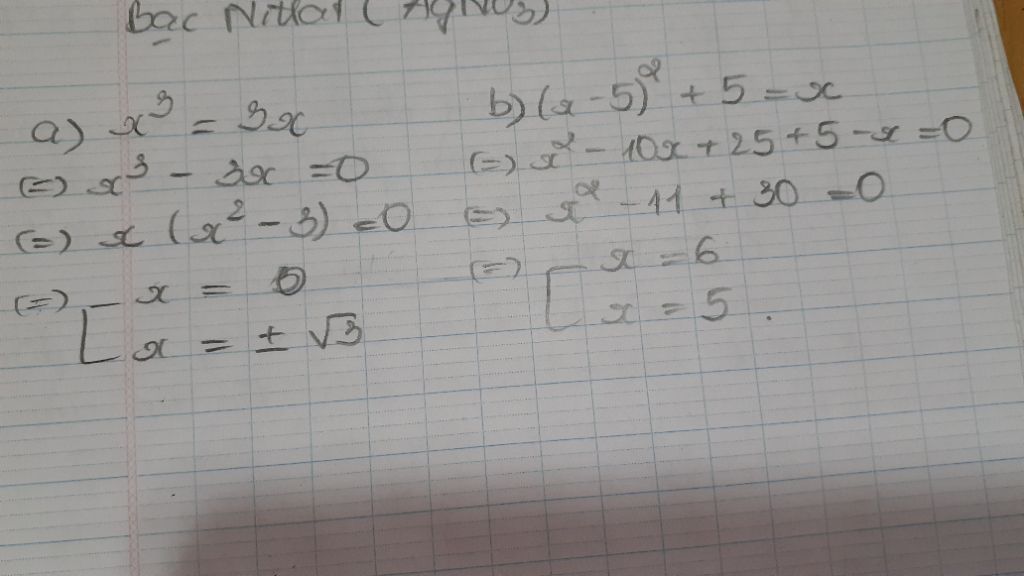 Bạc Nitrat ( AgNO3)
a) x³ = 3x
(=) x³ - 3x = 0
(=) x (x² - 3) = 0
(=) [ x = 0
x = ± √3
b) (x - 5)² + 5 = x
(=) x² - 10x + 25 + 5 - x = 0
(=) x² - 11 + 30 = 0
(=) [ x = 6
x = 5 .